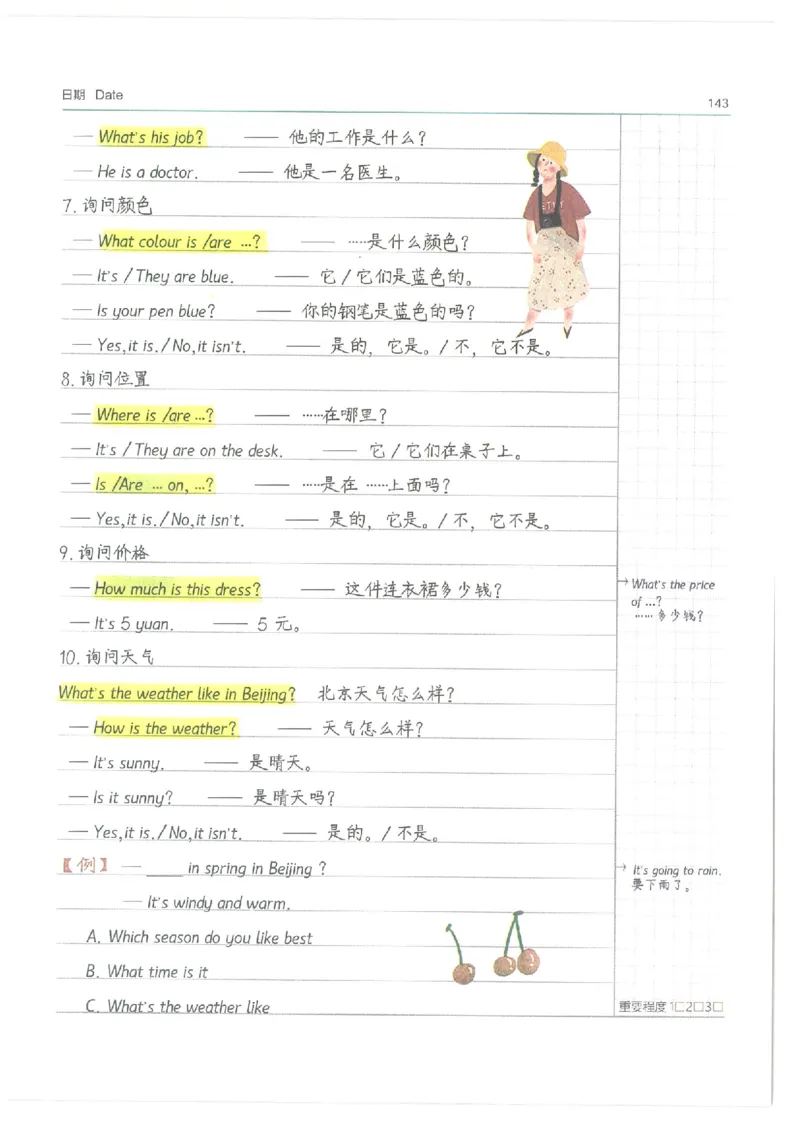 日期 Date
143
— What's his job? —— 他的工作是什么?
— He is a doctor. —— 他是一名医生。
7. 询问颜色
— What colour is /are ...? —— ……是什么颜色?
— It's / They are blue. —— 它 / 它们是蓝色的。
— Is your pen blue? —— 你的钢笔是蓝色的吗?
— Yes,it is. / No,it isn't. —— 是的，它是。/ 不，它不是。
8. 询问位置
— Where is /are ...? —— ……在哪里?
— It's / They are on the desk. —— 它 / 它们在桌子上。
— Is /Are ... on, ...? —— ……是在 ……上面吗?
— Yes,it is. / No,it isn't. —— 是的，它是。/ 不，它不是。
9. 询问价格
— How much is this dress? —— 这件连衣裙多少钱?
→ What's the price
of ...?
……多少钱?
— It's 5 yuan. —— 5 元。
10. 询问天气
What's the weather like in Beijing? 北京天气怎么样?
— How is the weather? —— 天气怎么样?
— It's sunny. —— 是晴天。
— Is it sunny? —— 是晴天吗?
— Yes,it is. / No,it isn't. —— 是的。/ 不是。
【例】 — ____ in spring in Beijing ?
→ It's going to rain.
要下雨了。
— It's windy and warm.
A. Which season do you like best
B. What time is it
C. What's the weather like
重要程度 1□2□3□